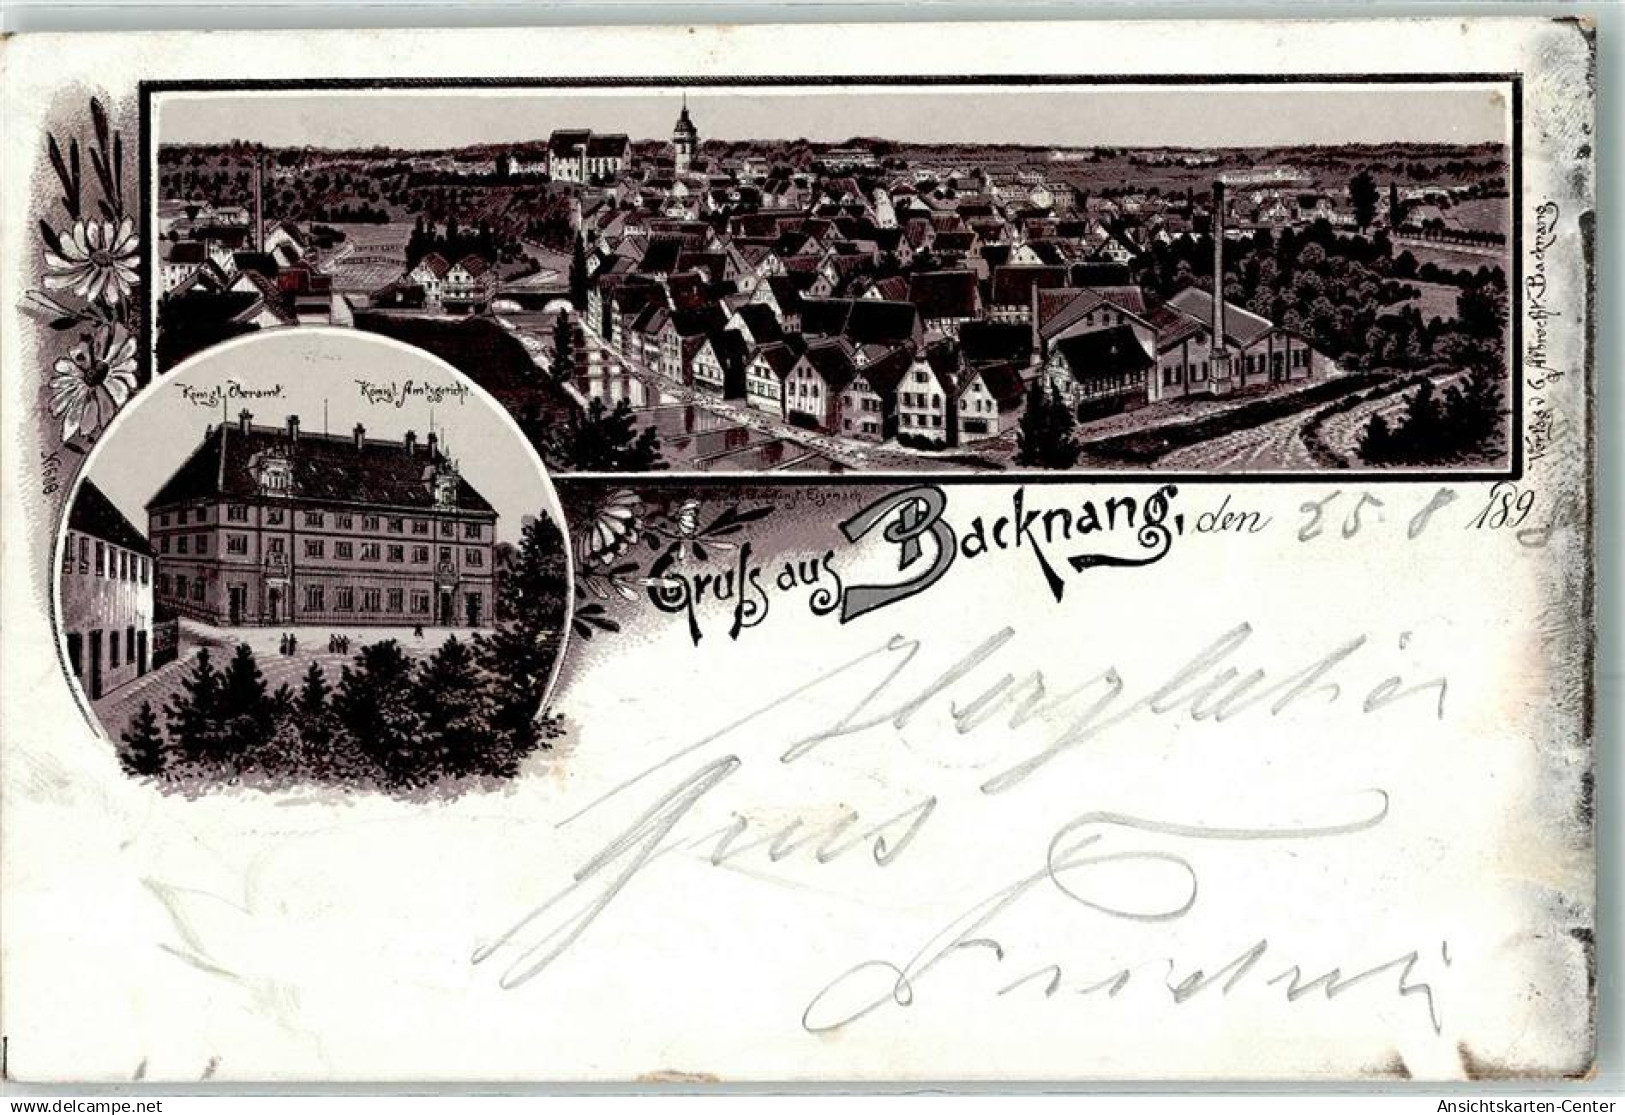 Königl. Oberamt.
Königl. Amtsgericht.
Verlag v. G.
Backnang.
Gruß aus Backnang, den 25 8 189
Herzlichen
Grus
Friedrich
delcampe.net
Ansichtskarten-Center